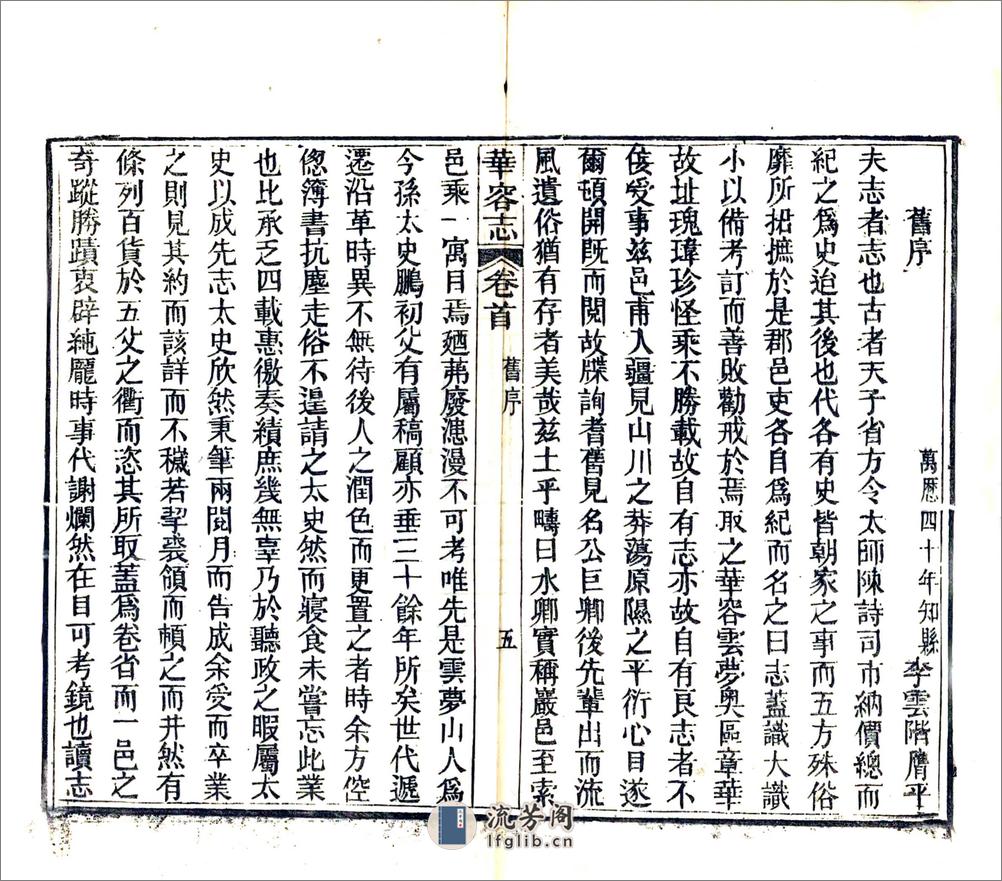 舊序
萬歷四十年知縣李雲階膺平
夫志者志也古者天子省方令太師陳詩司市納價總而
紀之爲史迨其後也代各有史皆朝家之事而五方殊俗
靡所招摭於是郡邑吏各自爲紀而名之曰志蓋識大識
小以備考訂而善敗勸戒於焉取之華容雲夢奧區章華
故址瑰瑋珍怪乘不勝載故自有志亦故自有良志者不
佞受事兹邑甫入疆見山川之莽蕩原隰之平衍心目遂
爾頓開既而閱故牒詢耆舊見名公巨卿後先輩出而流
風遺俗猶有存者美哉兹土乎疇曰水鄉實稱巖邑至索
華容志
卷首
舊序
五
邑乘一寓目焉廼茀廢漶漫不可考唯先是雲夢山人爲
今孫太史鵬初父有屬稿顧亦垂三十餘年所矣世代遞
遷沿革時異不無待後人之潤色而更置之者時余方倥
偬簿書抗塵走俗不遑請之太史然而寢食未嘗忘此業
也比承乏四載惠徼奏績庶幾無辜乃於聽政之暇屬太
史以成先志太史欣然秉筆兩閱月而告成余受而卒業
之則見其約而該詳而不穢若挈裘領而頓之而井然有
條列百貨於五父之衢而恣其所取蓋爲卷省而一邑之
奇蹤勝蹟衷辟純龐時事代謝爛然在目可考鏡也讀志
流芳阁
lfglib.cn